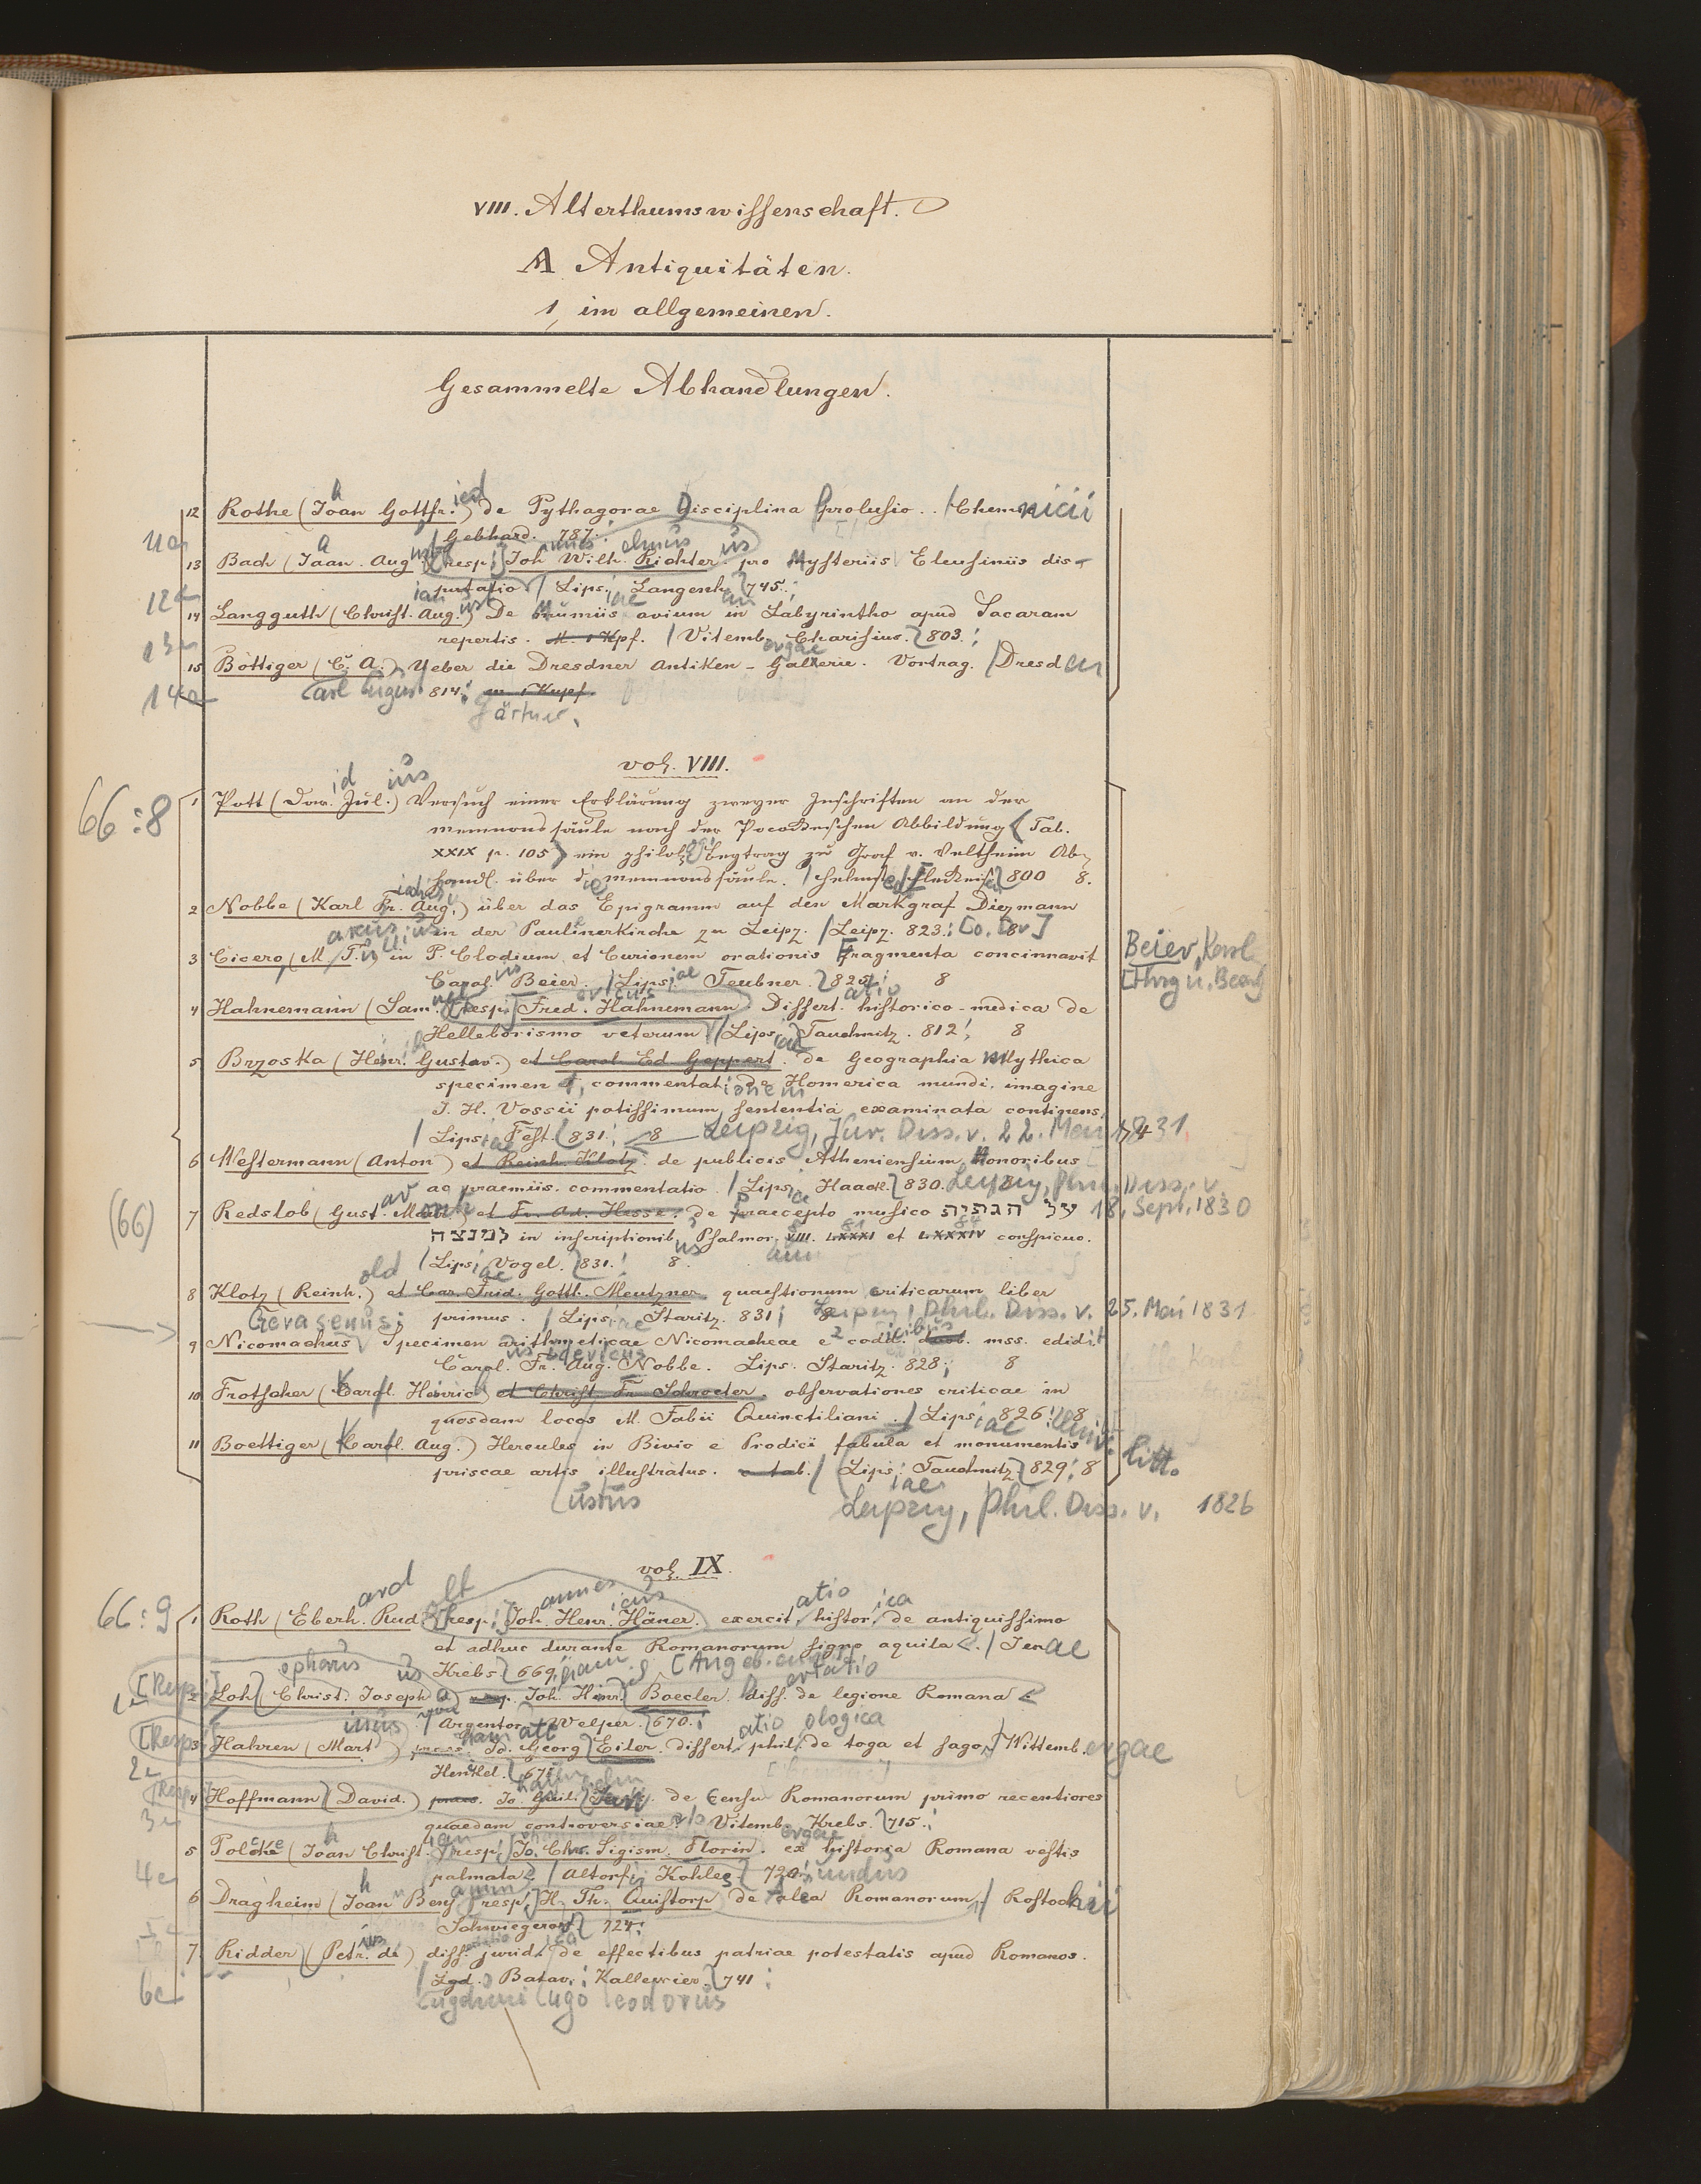 VIII. Alterthumswissenschaft.
A Antiquitäten.
1, im allgemeinen.
Gesammelte Abhandlungen.
12 Rothe (Joahn Gottfr.ied) de Pythagorae Disciplina Prolusio. / Chemnicii
Gebhard. 787.
11a
13 Bach (Joahn. Aug.) [resp.] Joh. Wilh. Richter. pro Mysteriis Eleusiniis dis-
putatio / Lipsiae Langenh. 745.
12
14 Langguth (Christ. Aug.) De Mumiis avium in Labyrintho apud Sacaram
repertis. M. 1 Kpf. / Vitemb. Charisius. 803.
13
15 Böttiger (C. A.) Ueber die Dresdner Antiken-Gallerie. Vortrag. / Dresden
14a Carl August 814. m. 1 Kupf.
Gärtner.
vol. VIII.
66:8
1 Pott (Dav.id Jul.ius) Versuch einer Erklärung zweyer Inschriften an der
Memnonssäule nach der Pocockeschen Abbildung (Tab.
XXIX p. 105) ein philol. Beytrag zu Graf v. Veltheim Ab-
handl. über die Memnonssäule. / Helmst. Fleckeisen 800 8.
2 Nobbe (Karl Fr. Aug.) über das Epigramm auf den Markgraf Diezmann
in der Paulinerkirche zu Leipz. / Leipz. 823. 8
3 Cicero, (M. T.) in P. Clodium et Curionem orationis Fragmenta concinnavit
Carol. Beier. / Lipsiae Teubner. 825. 8
Beier, Karl
[Hrsg. u. Bearb.]
4 Hahnemann (Sam.) [resp.] Fred. Hahnemann. Dissert.atio historico-medica de
Helleborismo veterum / Lipsiae Tauchnitz. 812. 8
5 Brzoska (Henr. Gustav.) et Carol. Ed. Geppert. de Geographia Mythica
specimen 1, commentationem de Homerica mundi imagine
J. H. Vossii potissimum sententia examinata continens.
/ Lipsiae Fest. 831. 8 Leipzig, Jur. Diss. v. 22. Mai 1831
6 Westermann (Anton) et Reinh. Klotz. de publicis Atheniensium Honoribus
ac praemiis. commentatio. / Lipsiae Haack. 830. Leipzig, Phil. Diss. v.
18. Sept. 1830
(66)
7 Redslob (Gust.av Mor.) et Fr. Ad. Hesse. de praecepto musico על הגתית
למנצח in inscriptionib.us Psalmor. VIII. LXXXI et LXXXIV conspicuo.
/ Lipsiae Vogel. 831. 8.
8 Klotz (Reinh.old) et Car. Frid. Gottl. Meutzner quaestionum criticarum liber
primus. / Lipsiae Staritz. 831; 8 Leipzig, Phil. Diss. v. 25. Mai 1831
Gerasenus;
9 Nicomachus Specimen arithmeticae Nicomacheae e 2 codd. mss. edidit
Carol. Fr. Aug. Nobbe. Lips. Staritz. 828; 8
10 Frotscher (Karl. Heinrich) et Christ. Fr. Schroeter. observationes criticae in
quosdam locos M. Fabii Quinctiliani. / Lipsiae 826. 8
11 Boettiger (Karl. Aug.) Hercules in Bivio e Prodici fabula et monumentis
priscae artis illustratus. c. tab. / Lipsiae Tauchnitz 829. 8
litt.
ustus Leipzig, Phil. Diss. v. 1826
vol. IX.
66:9
1 Roth (Eberh.ard Rud.) [resp.] Joh. Henr. Häner. exercit.atio histor.ica de antiquissimo
et adhuc durante Romanorum signo aquila. / Jenae
Krebs 669.
[Resp.]
2 Loh (Christ. Joseph a) resp. Joh. Henr. Boecler Diss.ertatio de legione Romana
/ Argentor. Welper. 670.
[Resp.]
3 Hahren (Mart.inus) praes. Jo. Georg Eiler. dissert.atio phil.ologica de toga et sago, / Wittembergae
Henckel. 671
2
[Resp.]
4 Hoffmann (David.) praes. Jo. Guil. Jan de censu Romanorum primo recentiores
quaedam controversiae. / Vitembergae Krebs. 715.
3
5 Polcke (Joahn Christ.ian) [resp.] Jo. Chr. Sigism. Florin. ex historia Romana vestis
palmata. / Altorfii Kohles 720.
4
6 Dragheim (Joahn Benj.) [resp.] H. Th. Quistorp de alea Romanorum, / Rostochii
Schwiegerov. 724.
7 Ridder (Petr.us de) diss. jurid.ica de effectibus patriae potestatis apud Romanos.
/ Lgd. Batav.; Kallewier. 741
6
Lugduni ugo eodorus